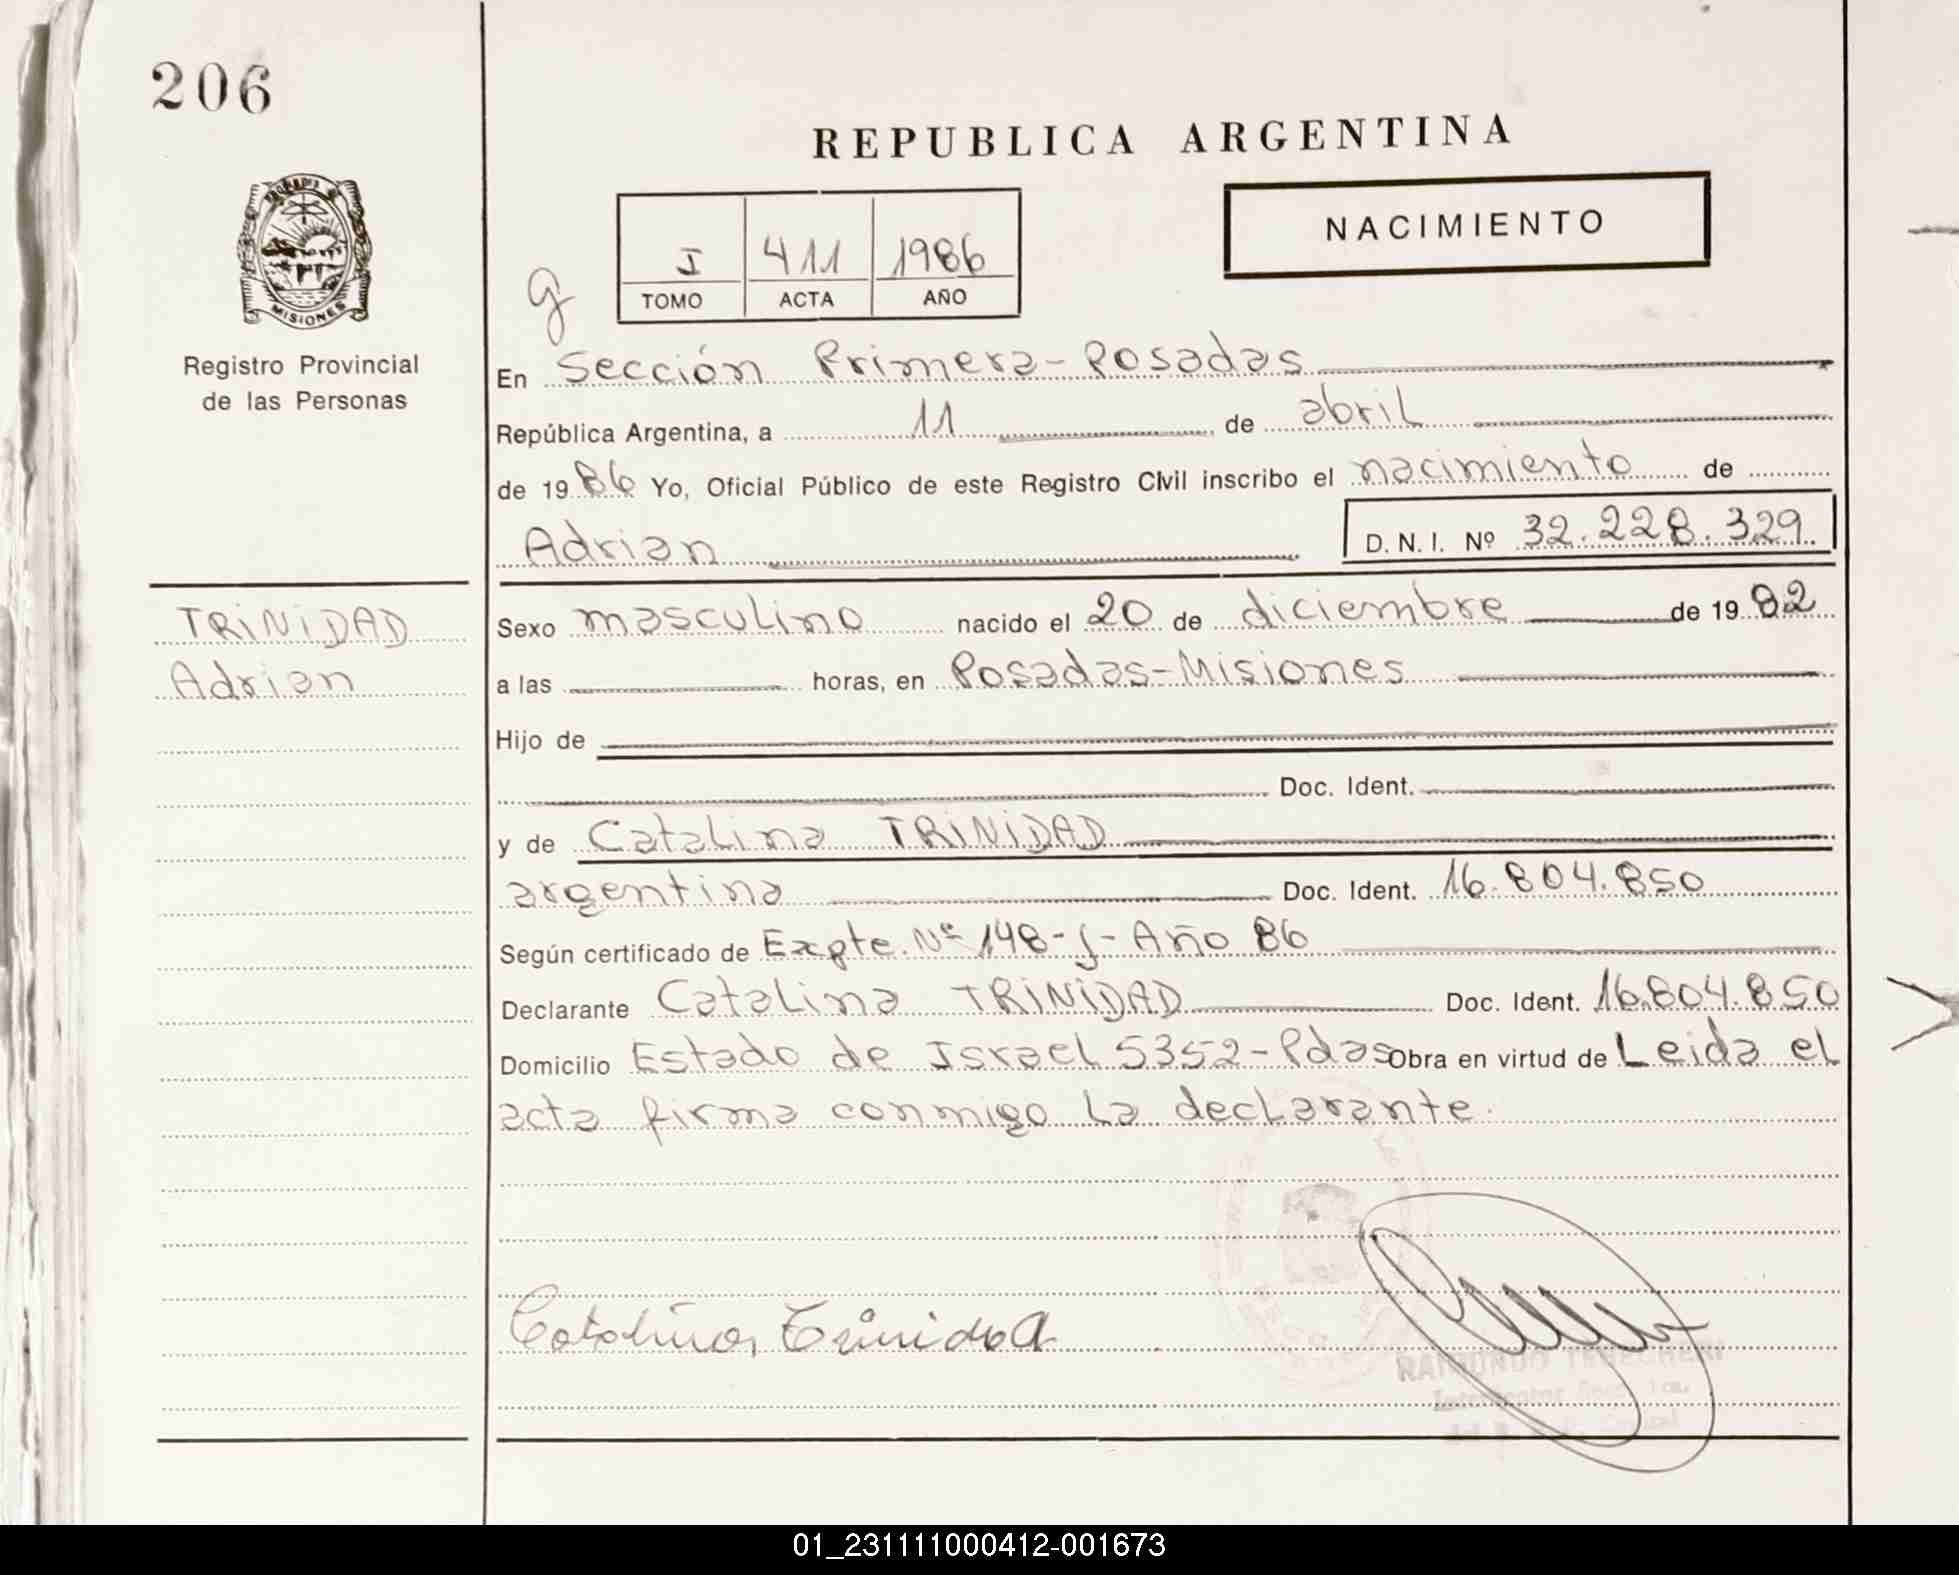 206
REPUBLICA ARGENTINA
NACIMIENTO
I 411 1986
TOMO ACTA AÑO
g
MISIONES
Registro Provincial
de las Personas
En Sección Primera-Posadas
República Argentina, a 11 de abril
de 1986 Yo, Oficial Público de este Registro Civil inscribo el nacimiento de
Adrian D.N.I. Nº 32.228.329
TRINIDAD
Adrian
Sexo masculino nacido el 20 de diciembre de 1982
a las horas, en Posadas-Misiones
Hijo de
Doc. Ident.
y de Catalina TRINIDAD
argentina Doc. Ident. 16.804.850
Según certificado de Expte. Nº 148-J-Año 86
Declarante Catalina TRINIDAD Doc. Ident. 16.804.850
Domicilio Estado de Israel 5352-Pdas Obra en virtud de Leida el
acta firma conmigo la declarante.
Catalina Trinidad
RAIMUNDO
01_231111000412-001673